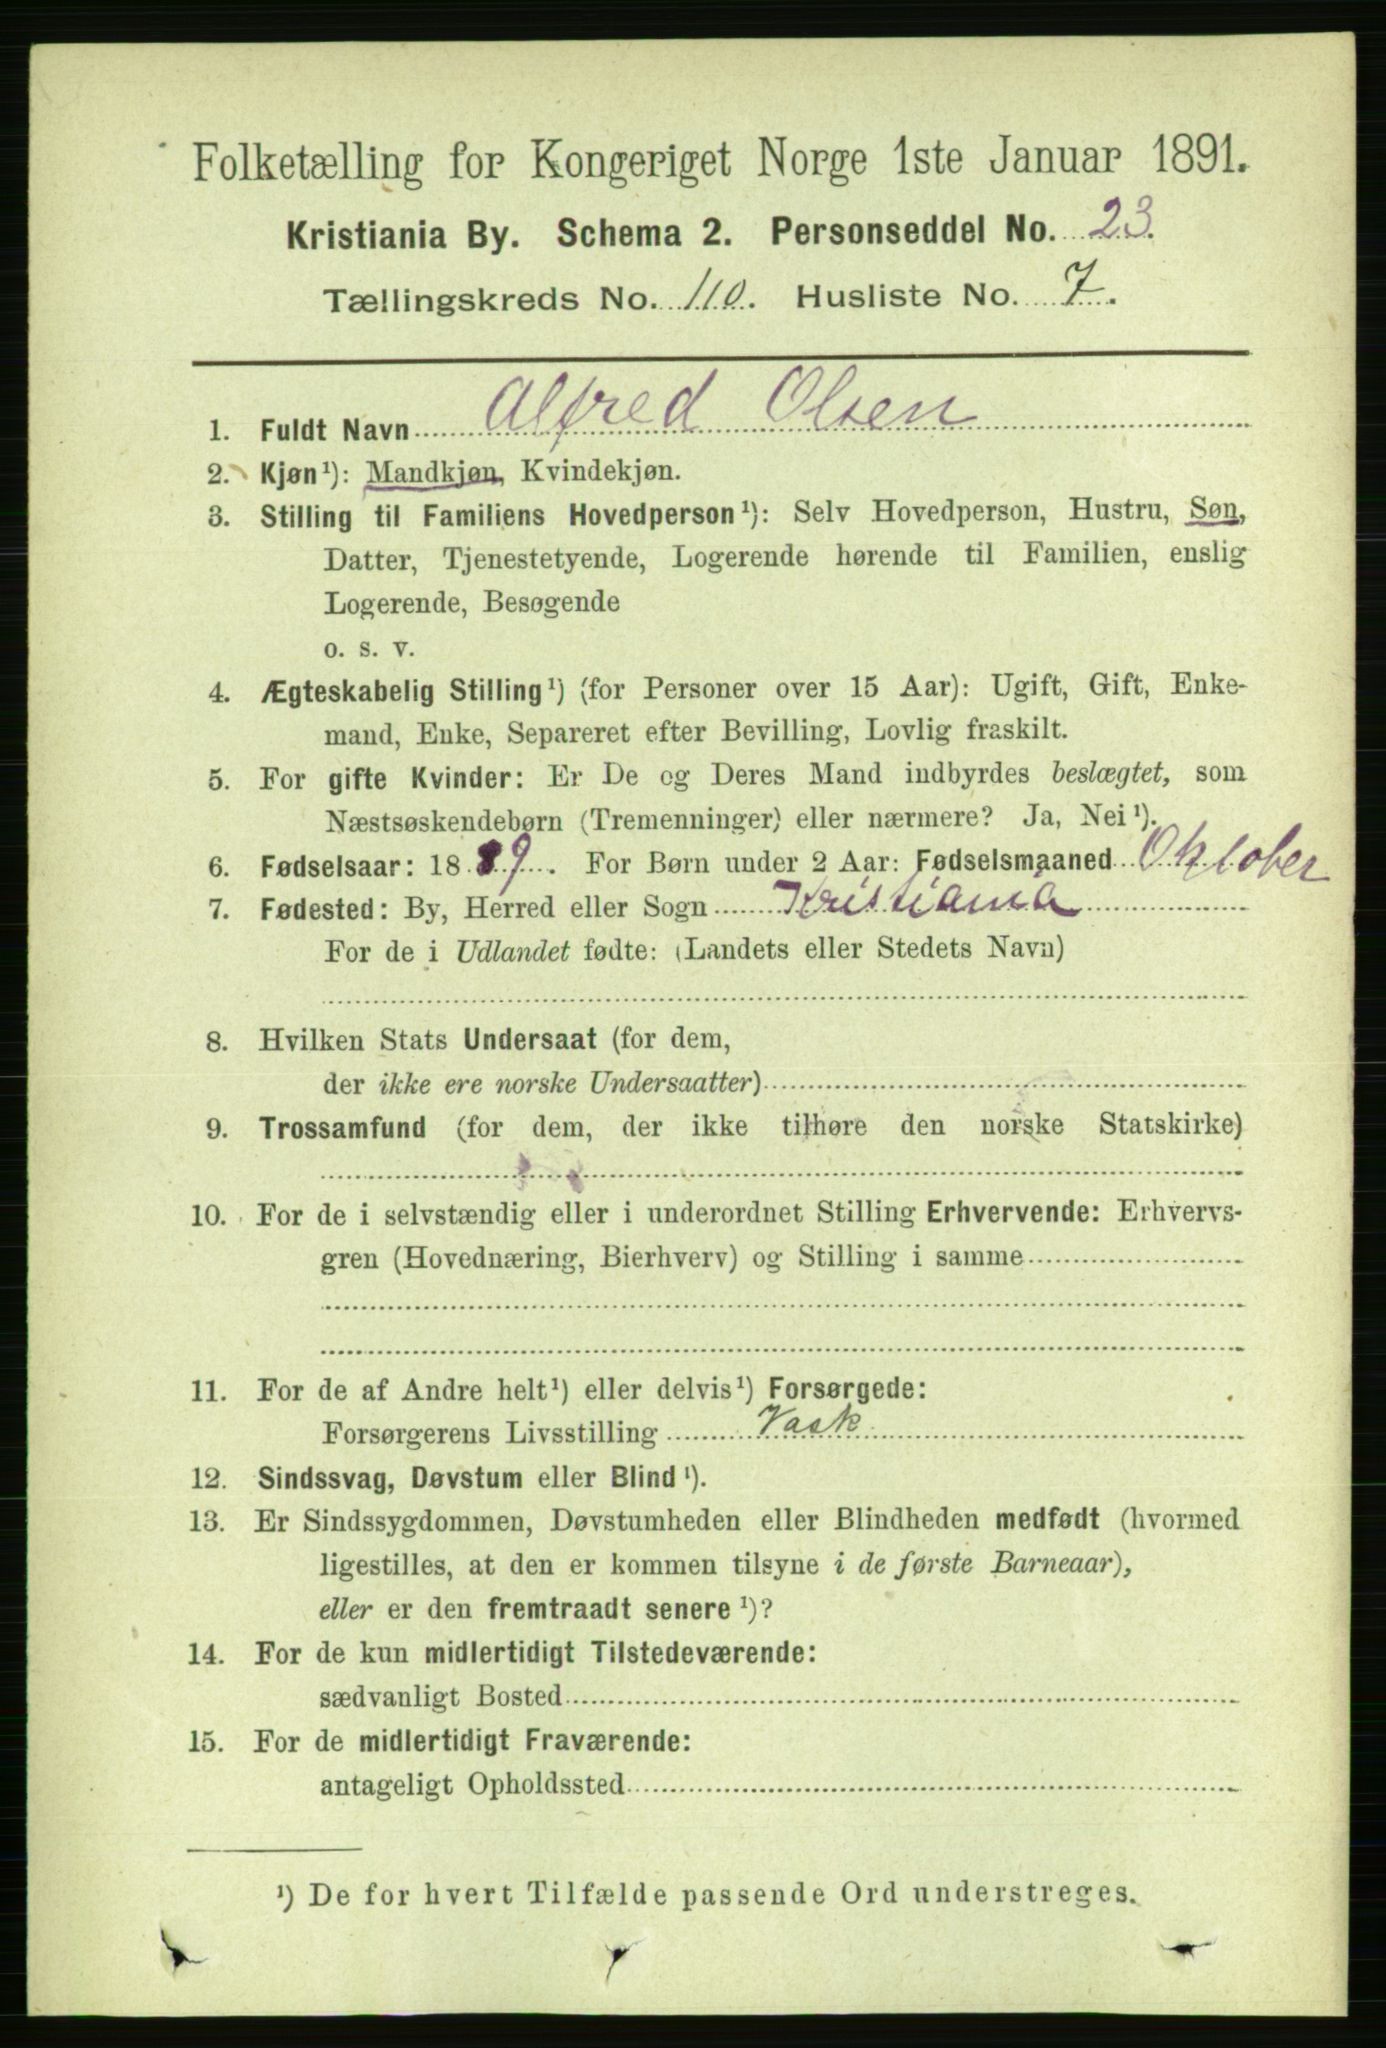 Folketælling for Kongeriget Norge 1ste Januar 1891.
Kristiania By. Schema 2. Personseddel No. 23.
Tællingskreds No. 110. Husliste No. 7.
1. Fuldt Navn Alfred Olsen
2. Kjøn¹): Mandkjøn, Kvindekjøn.
3. Stilling til Familiens Hovedperson¹): Selv Hovedperson, Hustru, Søn,
Datter, Tjenestetyende, Logerende hørende til Familien, enslig
Logerende, Besøgende
o. s. v.
4. Ægteskabelig Stilling¹) (for Personer over 15 Aar): Ugift, Gift, Enke-
mand, Enke, Separeret efter Bevilling, Lovlig fraskilt.
5. For gifte Kvinder: Er De og Deres Mand indbyrdes beslægtet, som
Næstsøskendebørn (Tremenninger) eller nærmere? Ja, Nei¹).
6. Fødselsaar: 1889. For Børn under 2 Aar: Fødselsmaaned Oktober
7. Fødested: By, Herred eller Sogn Kristiania
For de i Udlandet fødte: (Landets eller Stedets Navn)
8. Hvilken Stats Undersaat (for dem,
der ikke ere norske Undersaatter)
9. Trossamfund (for dem, der ikke tilhøre den norske Statskirke)
10. For de i selvstændig eller i underordnet Stilling Erhvervende: Erhvervs-
gren (Hovednæring, Bierhverv) og Stilling i samme
11. For de af Andre helt¹) eller delvis¹) Forsørgede:
Forsørgerens Livsstilling Vask
12. Sindssvag, Døvstum eller Blind¹).
13. Er Sindssygdommen, Døvstumheden eller Blindheden medfødt (hvormed
ligestilles, at den er kommen tilsyne i de første Barneaar),
eller er den fremtraadt senere¹)?
14. For de kun midlertidigt Tilstedeværende:
sædvanligt Bosted
15. For de midlertidigt Fraværende:
antageligt Opholdssted
¹) De for hvert Tilfælde passende Ord understreges.